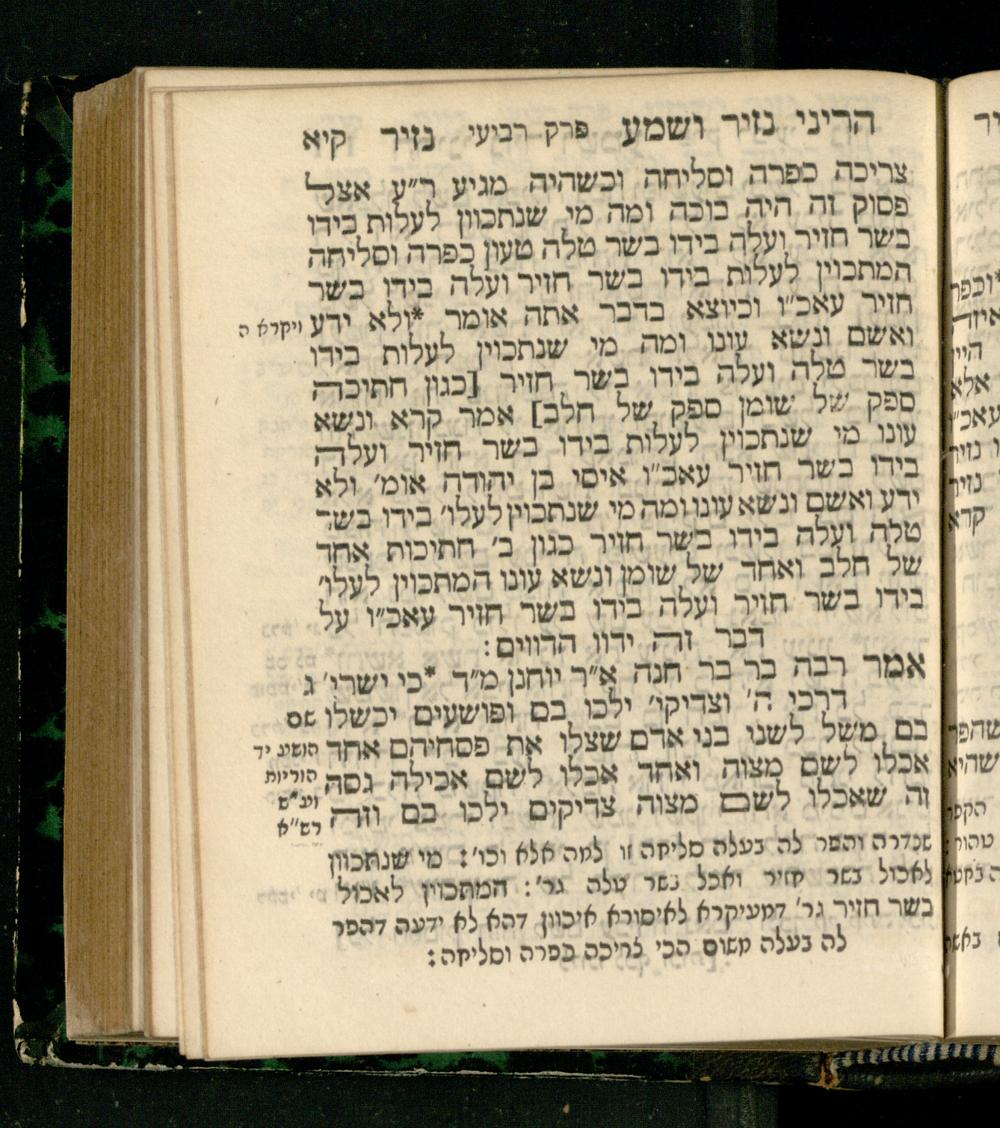 הריני נזיר ושמע פרק רביעי נזיר קיא
צריכה כפרה וסליחה וכשהיה מגיע ר״ע אצל
פסוק זה היה בוכה ומה מי שנתכוון לעלות בידו
בשר חזיר ועלה בידו בשר טלה טעון כפרה וסליחה
המתכוין לעלות בידו בשר חזיר ועלה בידו בשר
חזיר עאכ״ו וכיוצא בדבר אתה אומר *ולא ידע
ויקרא ה
ואשם ונשא עונו ומה מי שנתכוין לעלות בידו
בשר טלה ועלה בידו בשר חזיר [כגון חתיכה
ספק של שומן ספק של חלב] אמר קרא ונשא
עונו מי שנתכוין לעלות בידו בשר חזיר ועלה
בידו בשר חזיר עאכ״ו איסי בן יהודה אומ׳ ולא
ידע ואשם ונשא עונו ומה מי שנתכוין לעלו׳ בידו בשר
טלה ועלה בידו בשר חזיר כגון ב׳ חתיכות אחד
של חלב ואחד של שומן ונשא עונו המתכוין לעלו׳
בידו בשר חזיר ועלה בידו בשר חזיר עאכ״ו על
דבר זה ידוו הדווים:
אמר רבה בר בר חנה א״ר יוחנן מ״ד *כי ישרי׳ ג
דרכי ה׳ וצדיקי׳ ילכו בם ופושעים יכשלו
שם
בם משל לשני בני אדם שצלו את פסחיהם אחד
הושע יד
אכלו לשם מצוה ואחד אכלו לשם אכילה גסה
הוריות
זה שאכלו לשם מצוה צדיקים ילכו בם וזה
וע״ש
רש״א
שנדרה והפר לה בעלה סליחה זו למה אלא וכו׳: מי שנתכוון
לאכול בשר חזיר ואכל בשר טלה גר׳: המתכוין לאכול
בשר חזיר גר׳ דמעיקרא לאיסורא איכוון דהא לא ידעה דהפר
לה בעלה משום הכי צריכה כפרה וסליחה: